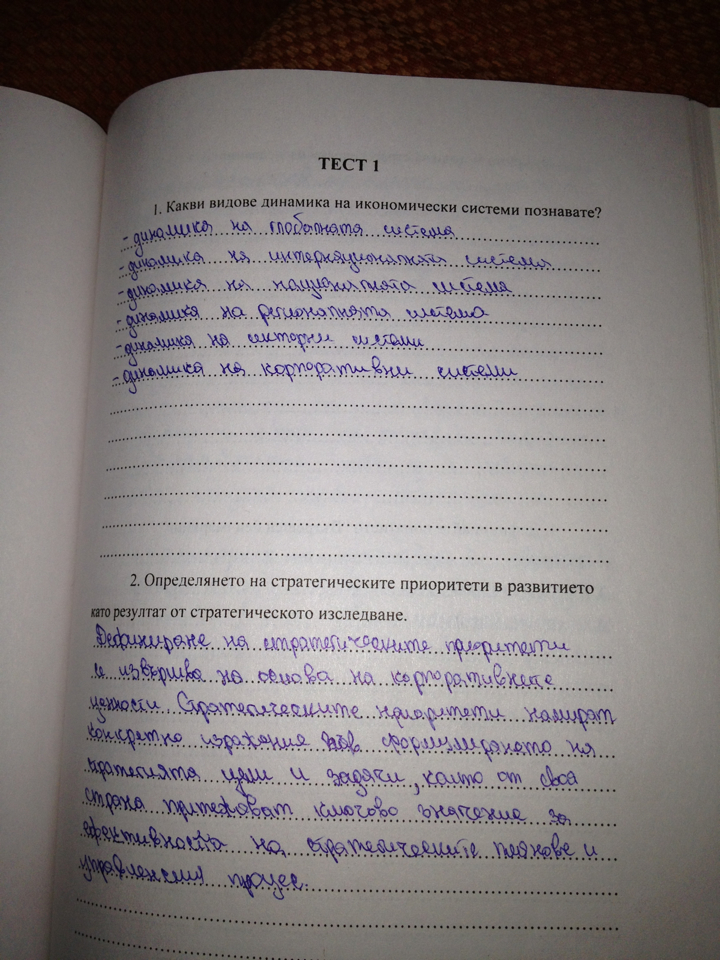 ТЕСТ 1
1. Какви видове динамика на икономически системи познавате?
- динамика на глобалната система
- динамика на интернационалната система
- динамика на националната система
- динамика на регионалната система
- динамика на секторни системи
- динамика на корпоративни системи
2. Определянето на стратегическите приоритети в развитието
като резултат от стратегическото изследване.
Дефиниране на стратегическите приоритети
се извършва на основа на корпоративните
ценности. Стратегическите приоритети намират
конкретно изражение във формулираната на
стратегията цели и задачи, които от своя
страна притежават ключово значение за
ефективността на стратегическите планове и
управленския процес.